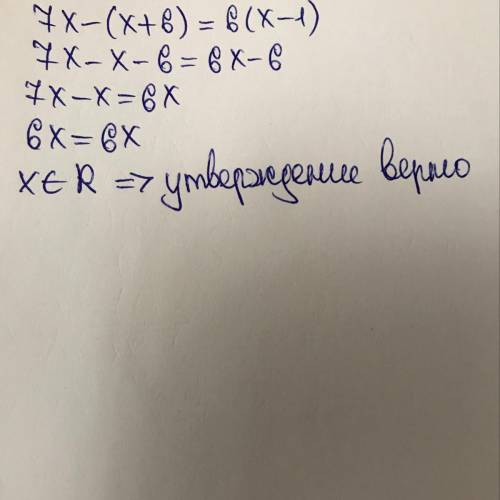 7x-(x+6)=6(x-1)
7x-x-6=6x-6
7x-x=6x
6x=6x
x∈R => утверждение верно